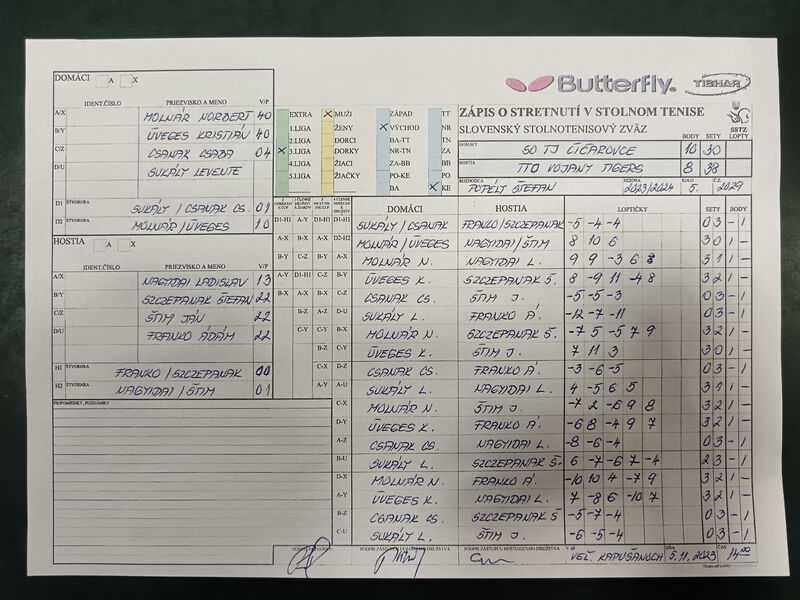 Butterfly
TIBHAR
DOMÁCI A X
IDENT.ČÍSLO PRIEZVISKO A MENO V/P
A/X MOLNÁR NORBERT 40
B/Y ÜVEGES KRISTIÁN 40
C/Z CSANAK CSABA 04
D/U SUKÁLY LEVENTE
D1 ŠTVORHRA SUKÁLY / CSANAK CS. 01
D2 ŠTVORHRA MOLNÁR / ÜVEGES 10
HOSTIA A X
IDENT.ČÍSLO PRIEZVISKO A MENO V/P
A/X NAGYIDAI LADISLAV 13
B/Y SZCZEPANAK ŠTEFAN 22
C/Z ŠTIM JÁN 22
D/U FRANKO ÁDÁM 22
H1 ŠTVORHRA FRANKO / SZCZEPANAK 00
H2 ŠTVORHRA NAGYIDAI / ŠTIM 01
PRIPOMIENKY, POZNÁMKY
EXTRA X MUŽI ZÁPAD TT
1.LIGA ŽENY X VÝCHOD NR
2.LIGA DORCI BA-TT TN
X 3.LIGA DORKY NR-TN ZA
4.LIGA ŽIACI ZA-BB BB
5.LIGA ŽIAČKY PO-KE PO
BA X KE
ZÁPIS O STRETNUTÍ V STOLNOM TENISE
SLOVENSKÝ STOLNOTENISOVÝ ZVÄZ
SSTZ
BODY SETY LOPTY
DOMÁCI SO TJ ČIČAROVCE 10 30
HOSTIA TTO VOJANY TIGERS 8 38
ROZHODCA POPÉLY ŠTEFAN SEZÓNA 2023/2024 KOLO 5. Č.Z. 2029
DOMÁCI HOSTIA LOPTIČKY SETY BODY
D1-H1 A-Y D1-H1 D1-H1 SUKÁLY / CSANAK FRANKO / SZCZEPANAK -5 -4 -4 0 3 - 1
A-X B-X A-X D2-H2 MOLNÁR / ÜVEGES NAGYIDAI / ŠTIM 8 10 6 3 0 1 -
B-Y C-Z B-Y A-X MOLNÁR N. NAGYIDAI L. 9 9 -3 6 8 3 1 1 -
A-Y D1-H1 C-Z B-Y ÜVEGES K. SZCZEPANAK Š. 8 -9 11 -4 8 3 2 1 -
B-X A-X B-X C-Z CSANAK CS. ŠTIM J. -5 -5 -3 0 3 - 1
B-Z A-Z D-U SUKÁLY L. FRANKO Á. -12 -7 -11 0 3 - 1
C-Y C-Y B-X MOLNÁR N. SZCZEPANAK Š. -7 5 -5 7 9 3 2 1 -
B-Z C-Y ÜVEGES K. ŠTIM J. 7 11 3 3 0 1 -
C-X D-Z CSANAK CS. FRANKO Á. -3 -6 -5 0 3 - 1
A-Y A-U SUKÁLY L. NAGYIDAI L. 4 -5 6 5 3 1 1 -
C-X MOLNÁR N. ŠTIM J. -7 2 -6 9 8 3 2 1 -
D-Y ÜVEGES K. FRANKO Á. -6 8 -4 9 7 3 2 1 -
A-Z CSANAK CS. NAGYIDAI L. -8 -6 -4 0 3 - 1
B-U SUKÁLY L. SZCZEPANAK Š. 6 -7 -6 7 -4 2 3 - 1
D-X MOLNÁR N. FRANKO Á. -10 10 4 -7 9 3 2 1 -
A-Y ÜVEGES K. NAGYIDAI L. 7 -8 6 -10 7 3 2 1 -
B-Z CSANAK CS. SZCZEPANAK Š -5 -7 -4 0 3 - 1
C-U SUKÁLY L. ŠTIM J. -6 -5 -4 0 3 - 1
PODPIS ZÁSTUPCU HOSŤUJÚCEHO DRUŽSTVA V VEĽ. KAPUŠANOCH DŇA 5.11.2023 ČAS 14⁰⁰